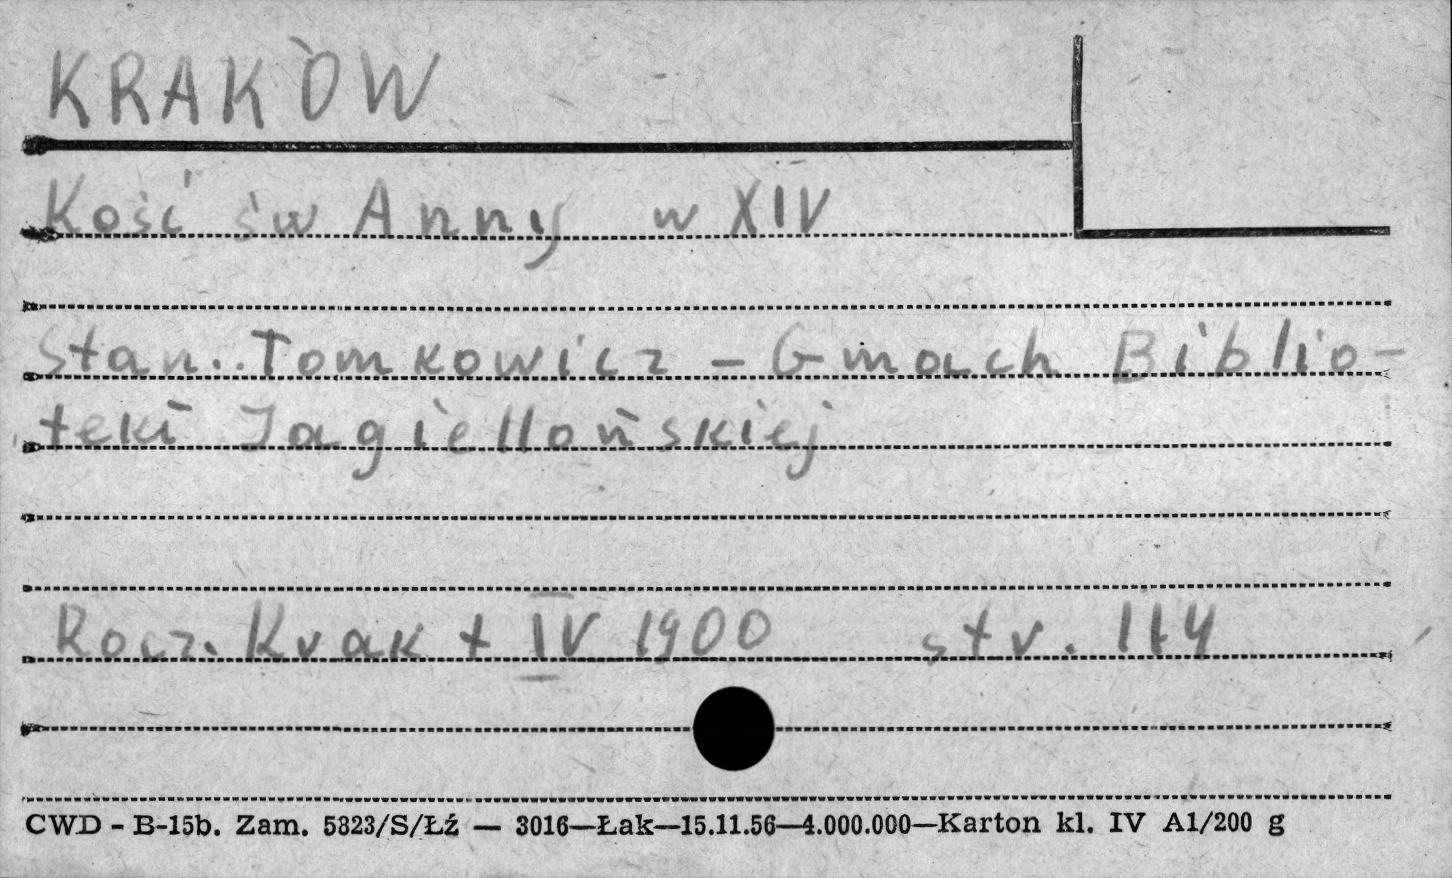 KRAKÓW
Kość św Anny w XIV
Stan. Tomkowicz - Gmach Biblio-
teki Jagiellońskiej
Rocz. Krak t IV 1900 str. 114
CWD - B-15b. Zam. 5823/S/Łź — 3016—Łak—15.11.56—4.000.000—Karton kl. IV A1/200 g